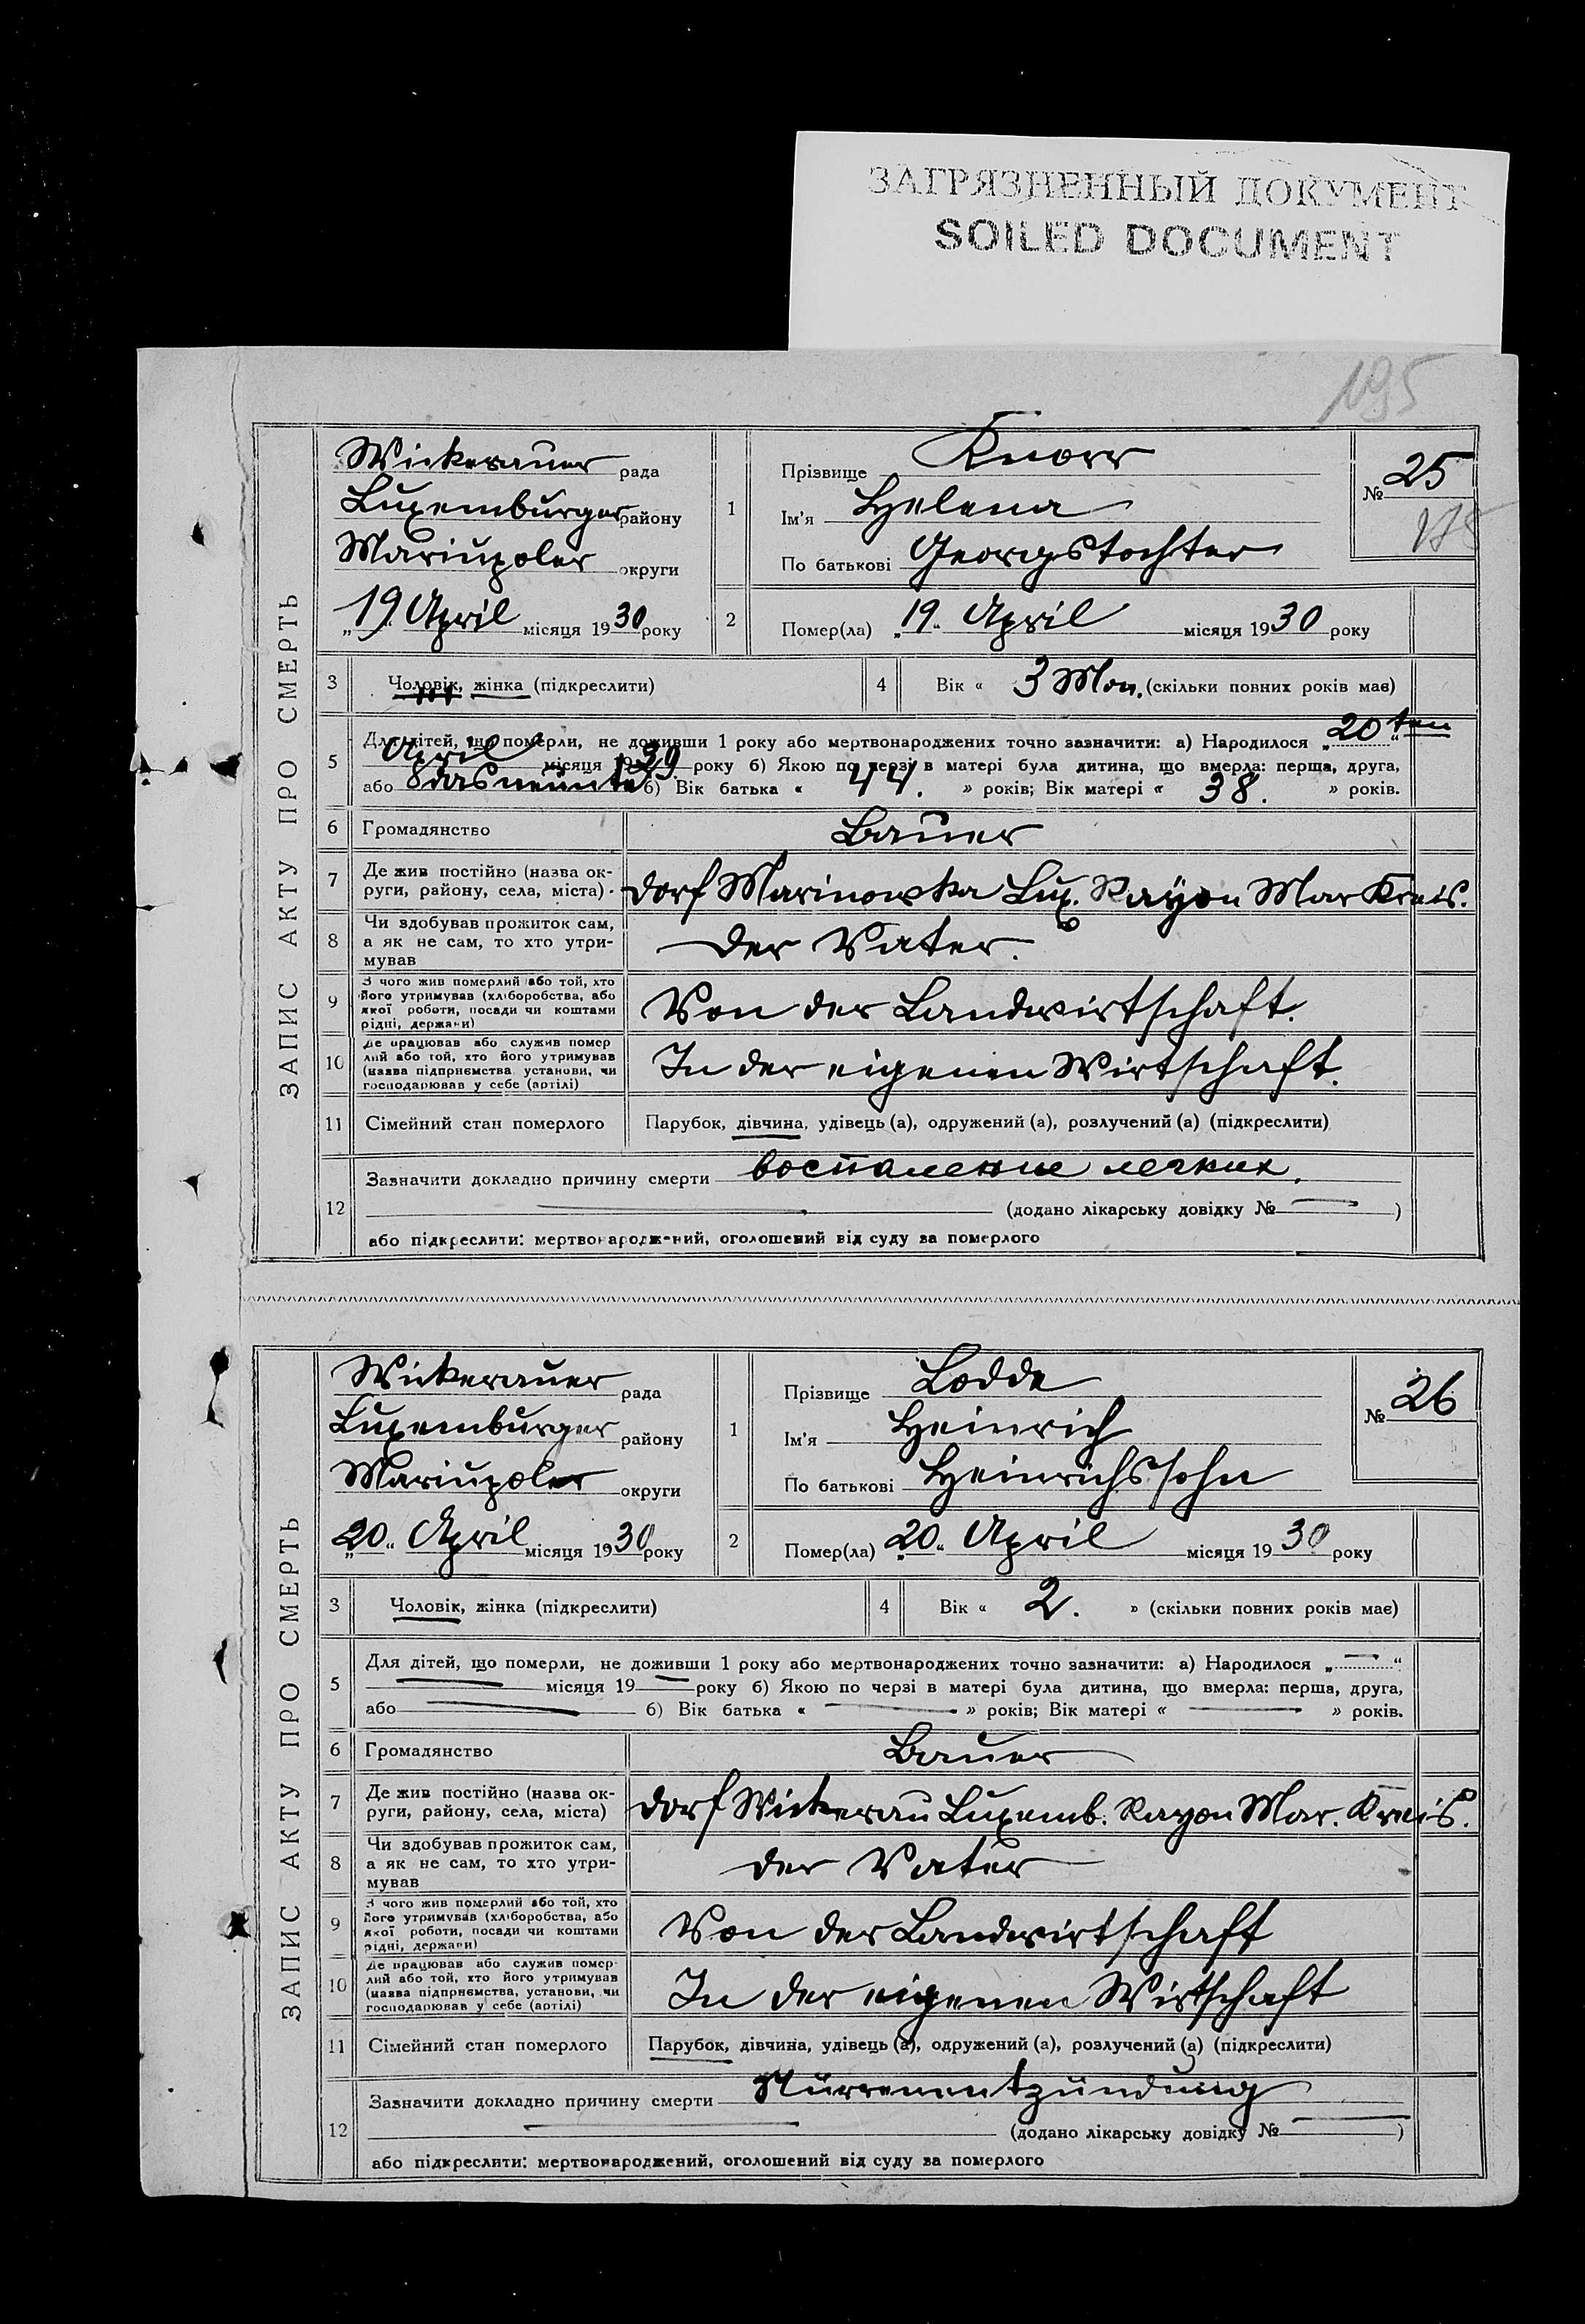 ЗАГРЯЗНЕННЫЙ ДОКУМЕНТ
SOILED DOCUMENT
195
ЗАПИС АКТУ ПРО СМЕРТЬ
Wickerauer рада
Luxemburger району
Mariupoler округи
„19 April місяця 1930 року
1
Прізвище Knorr
Ім'я Helena
По батькові Georgstochter
№ 25
2
Помер(ла) „19" April місяця 1930 року
3 Чоловік, жінка (підкреслити)
4 Вік « 3 Mon. (скільки повних років має)
5
Для дітей, що померли, не доживши 1 року або мертвонароджених точно зазначити: а) Народилося „20ten“
April місяця 1929 року б) Якою по черзі в матері була дитина, що вмерла: перша, друга,
або das neunte б) Вік батька « 44. » років; Вік матері « 38. » років.
6 Громадянство Bauer
7 Де жив постійно (назва ок-
руги, району, села, міста) Dorf Marinowka Lux. Rayon Mar Kreis.
8 Чи здобував прожиток сам,
а як не сам, то хто утри-
мував
Der Vater.
9 З чого жив померлий або той, хто
його утримував (хліборобства, або
якої роботи, посади чи коштами
рідні, держави)
Von der Landwirtschaft.
10 Де працював або служив помер
лий або той, хто його утримував
(назва підприємства установи, чи
господарював у себе (артілі)
In der eigenen Wirtschaft.
11 Сімейний стан померлого Парубок, дівчина, удівець (а), одружений (а), розлучений (а) (підкреслити)
12
Зазначити докладно причину смерти воспаление легких.
(додано лікарську довідку № — )
або підкреслити: мертвонароджений, оголошений від суду за померлого
ЗАПИС АКТУ ПРО СМЕРТЬ
Wickerauer рада
Luxemburger району
Mariupoler округи
„20" April місяця 1930 року
1
Прізвище Lodde
Ім'я Heinrich
По батькові Heinrichssohn
№ 26
2
Помер(ла) „20" April місяця 1930 року
3 Чоловік, жінка (підкреслити)
4 Вік « 2. » (скільки повних років має)
5
Для дітей, що померли, не доживши 1 року або мертвонароджених точно зазначити: а) Народилося „ — “
— місяця 19 — року б) Якою по черзі в матері була дитина, що вмерла: перша, друга,
або — б) Вік батька « — » років; Вік матері « — » років.
6 Громадянство Bauer
7 Де жив постійно (назва ок-
руги, району, села, міста) Dorf Wickerau Luxemb. Rayon Mar. Kreis.
8 Чи здобував прожиток сам,
а як не сам, то хто утри-
мував
Der Vater
9 З чого жив померлий або той, хто
його утримував (хліборобства, або
якої роботи, посади чи коштами
рідні, держави)
Von der Landwirtschaft
10 Де працював або служив помер-
лий або той, хто його утримував
(назва підприємства, установи, чи
господарював у себе (артілі)
In der eigenen Wirtschaft
11 Сімейний стан померлого Парубок, дівчина, удівець (а), одружений (а), розлучений (а) (підкреслити)
12
Зазначити докладно причину смерти
(додано лікарську довідку № — )
або підкреслити: мертвонароджений, оголошений від суду за померлого